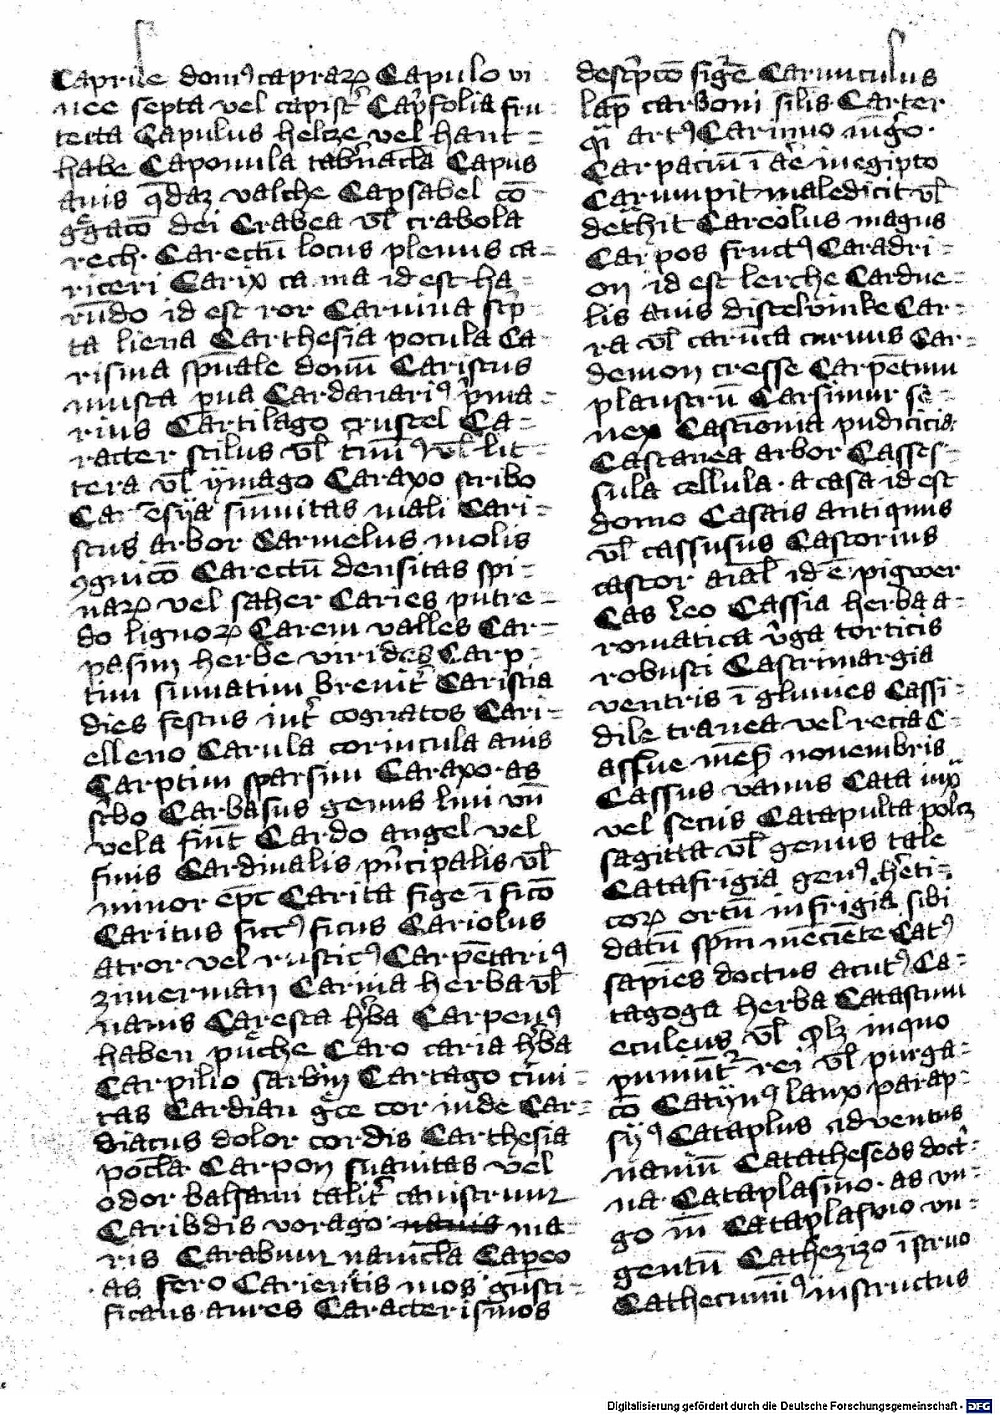 Caprile domꝰ capraꝝ Capulo vi
nee septa vel capistr̄ Cap̄folia fru
tecta Capulus helcze vel hant=
habe Caponula tab̄nacl̄a Capus
auis q̄daz valche Capsabel cō
g̊gacō dei Crabea vl̄ crabola
rech. Carectū locus plenus ca=
riceri Carix ca ma id est ha=
rūdo id est ror Carmina sc̄p
ta liena Carthesia pocula Ca=
risma sp̄uale donū Cariscus
musca p̄ua Cardanariꝰ p̄ma=
rius Cartilago crustel Ca=
racter stilus vl̄ vl̄ lit=
tera vl̄ ymago Caraxo scribo
Car sum̄itas mali Cari=
scus arbor Carmelus molis
ꝯgnicō Carectū densitas spi=
naꝝ vel saher Caries putre=
do lignoꝝ Carem valles Car=
pasim herbe virides Carp=
tim sum̄atim breuit̄ Caristia
dies festus int̄ cognatos Cari=
elleno Carula cornicula auis
Carptim sparsim Caraxo·as
sc̄bo Carbasus genus lini vn̄
vela fiūt Cardo angel vel
finis Cardinalis p̄ncipalis vl̄
minor ep̄c Carita fige ī ficō
Caritus ficꝰ ficus Cariolus
atror vel rusticꝰ Carpētariꝰ
zimerman Carina herba vl̄
nauis Caresta h̄ba Carpenꝰ
haben pu̇che Caro caria h̄ba
Carpilio sarbin Cartago ciui=
tas Cardian g̊ce cor inde Car=
diacus dolor cordis Carthesia
pocl̄a Carpon suauitas vel
odor balsami talit̄ canistrum
Caribdis vorago nauis ma=
ris Carabum nauicl̄a Capeo
·as fero Carientis mos gusti=
ficans aures Caracterismos
desc̄pcō fig̊e Carunculus
lap̄ carboni sīlis Carter
q̄i artꝰ Carinuo
Carpaciū ī aē inegipto
Carumpit maledicit vl̄
det̊hit Careolus magus
Carpos fructꝰ Caradri=
on id est lerche Cardue=
lis auis distelvinke Car=
ra vl̄ caruca curuus Car=
demon cresse Carpētum
plaustrū Carsimur se=
nex Castionia pudicicia
Castanea arbor Casses=
sula cellula·a casa id est
domo Cascis antiquus
vl̄ cassusus Castorius
castor aīal id ē pigwer
Cas leo Cassia herba a=
romatica v̄ga torticis
robusti Castrimargia
ventris ī gluuies Cassi=
dile tranea vel recia C=
asleue mēs nouembris
Cassus vanus Cata
vel secus Catapulta polcz
sagitta vl̄ genus tale
Catafrigia genꝰ h̄eti=
coꝝ ortū infrigia sibi
datū sp̄m mēciēte Catꝰ
sapiēs doctus acutꝰ Ca=
tagoga herba Catastum
eculeus vl̄ inquo
puniūt̄ rei vl̄ purga=
cō Catynꝰ lanx parap=
syꝰ Cataplus aduentus
nauiū Catatheseos doct̄i
na Cataplasmo·as vn=
go Cataplasmo vn=
gentū Cathezizo īstruo
Cathecuminꝰ instructus
Digitalisierung gefördert durch die Deutsche Forschungsgemeinschaft - DFG